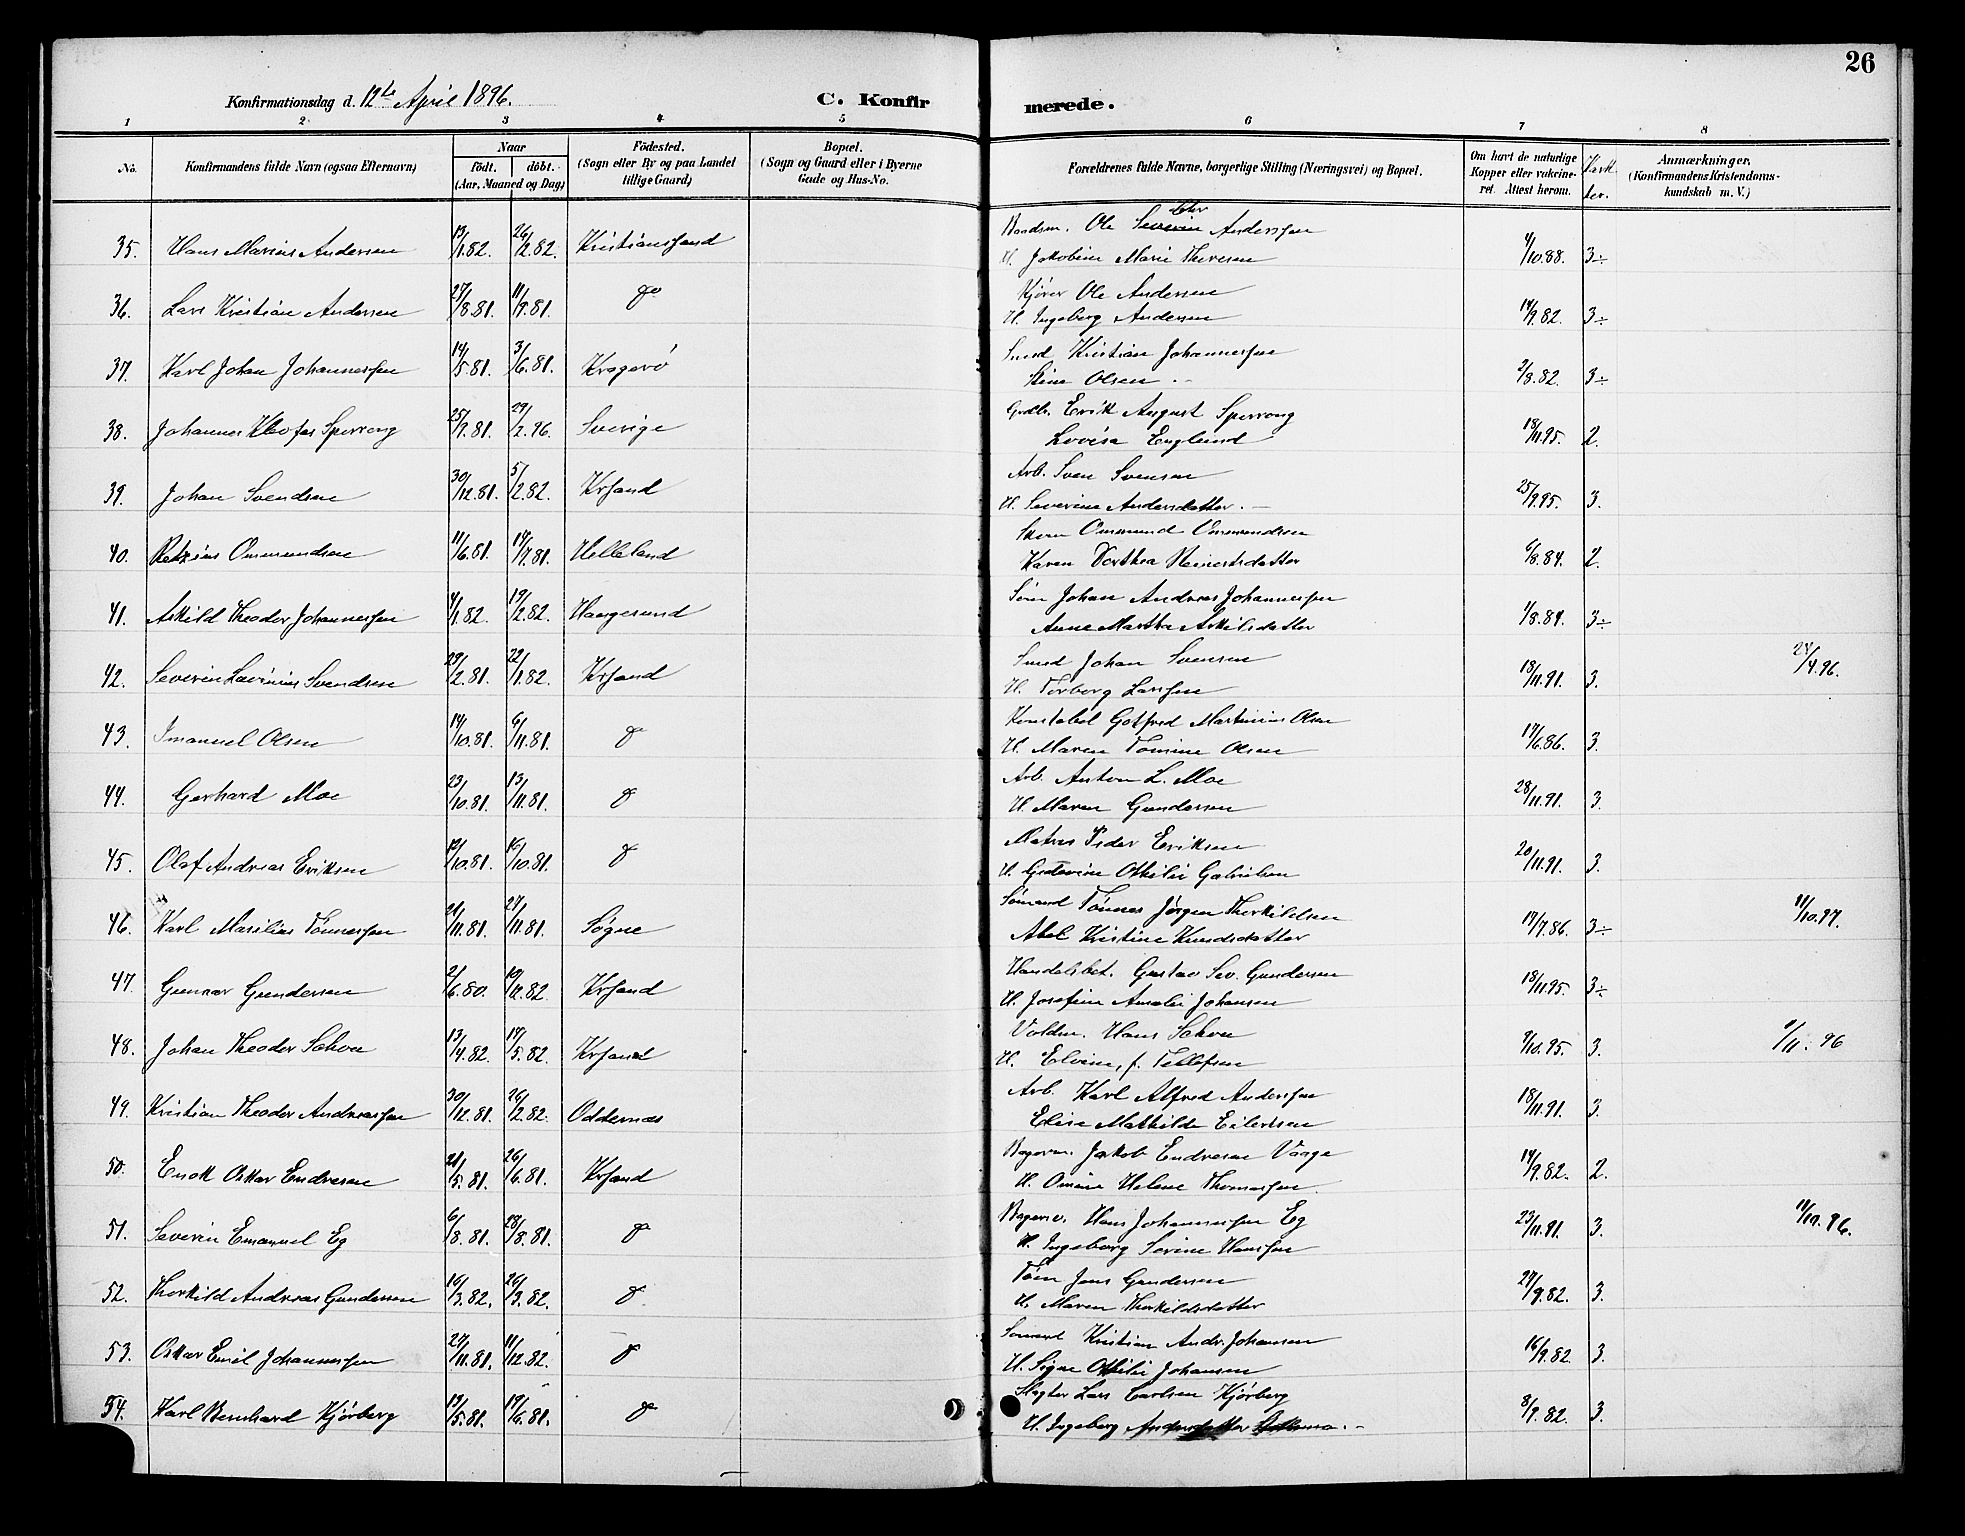 26
Konfirmationsdag d. 12te April 1896. C. Konfirmerede.
1 2 3 4 5 6 7 8
No. Konfirmandens fulde Navn (ogsaa Efternavn) Naar født. døbt. (Aar, Maaned og Dag) Fødested. (Sogn eller By og paa Landet tillige Gaard) Bopæl. (Sogn og Gaard eller i Byerne Gade og Hus-No. Forældrenes fulde Navne, borgerlige Stilling (Næringsvei) og Bopæl. Om havt de naturlige Kopper eller vakcineret. Attest herom. Anmærkninger. (Konfirmandens Kristendomskundskab m. V.)
35. Hans Marius Andersen 13/1.82. 26/2.82. Kristianssand Ole Andersen 4/10.88. 3÷
H. Jakobine Marie
36. Lars Kristian Andersen 27/8.81. 11/9.81. do Ole Andersen 14/9.82. 3÷
H. Ingeborg Andersen
37. Karl Johan Johannessen 14/5.81. 3/6.81. Kragerø Smed Kristian Johannessen 2/8.82. 3÷
Stine Olsen
38. Johannes Kleofas Sperrong 25/9.81. 29/2.96. Sverige Erik August Sperrong 18/11.95. 2.
Lovisa Englund
39. Johan Svendsen 30/12.81. 5/2.82. Krsand Arb. Sven Svensen 25/9.95. 3.
H. Severine Andersdatter.
40. Ommundsen 11/6.81. 14/7.81. Helleland Ommund Ommundsen 6/8.84. 2.
Karen Dorthea
41. Askild Theodor Johannessen 4/1.82. 19/2.82. Haugesund Johan Andreas Johannessen 1/8.84. 3÷
Anne Martha Askilsdatter
42. Severin Lavinius Svendsen 29/2.81. 22/1.82. Krsand Smed Johan Svensen 18/11.91. 3. 24/4.96.
H. Torborg Larssen
43. Imanuel Olsen 14/10.81. 6/11.81. do Konstabel Gotfred Martinius Olsen 17/6.86. 3.
H. Maren Tomine Olsen
44. Gerhard Moe 23/10.81. 13/11.81. do Arb. Anton L. Moe 28/11.91. 3.
H. Maren Gundersen
45. Olaf Andreas Eriksen 12/10.81. 16/10.81. do Matros Peder Eriksen 20/11.91. 3.
H. Ottilie Gabrielsen
46. Karl Tønnessen 21/11.81. 27/11.81. Søgne Sømand Tønnes Jørgen Thorkildsen 17/7.86. 3÷ 11/10.97.
Abel Kristine Knudsdatter
47. Gunnar Gundersen 2/6.80. 19/11.82. Krsand Handelsbet. Gustav Sev. Gundersen 18/11.95. 3÷
H. Josefine Amalie Johansen
48. Johan Theodor 13/4.82. 17/5.82. Krsand Hans 9/10.95. 3. 9/11.96
H. Elvine, f. Tellefsen
49. Kristian Theodor Andreassen 30/12.81. 26/2.82. Oddernes Arb. Karl Alfred Anderssen 18/11.91. 3.
Elise Mathilde Eilertsen
50. Enok Oskar Endresen 21/5.81. 26/6.81. Krsand Jakob Endresen Vaage 14/9.82. 2.
H. Omine Helene Thomassen
51. Severin Emanuel Eg 6/8.81. 28/8.81. do Hans Johannessen Eg 23/11.91. 3. 11/10.96.
H. Ingeborg Serine Hanssen
52. Thorkild Andreas Gundersen 16/3.82. 26/3.82. do Tøm Jens Gundersen 27/9.82. 3.
H. Maren Thorkildsdatter
53. Oskar Emil Johannessen 27/11.81. 11/12.82. do Kristian Andr. Johansen 16/9.82 3.
H. Signe Ottilie Johansen
54. Karl Bernhard Kjørberg 13/5.81. 19/6.81. do Slagter Lars Carlsen Kjørberg 8/9.82. 3.
H. Ingeborg